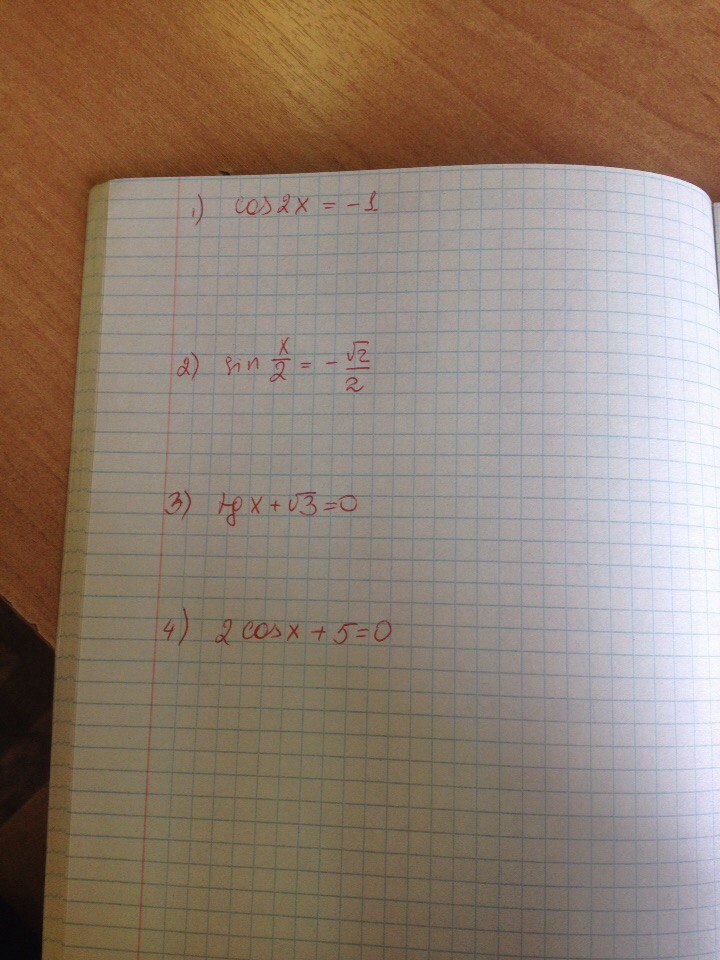 1) cos2x = -1
2) sin x/2 = -√2/2
3) tg x + √3 = 0
4) 2 cosx + 5 = 0